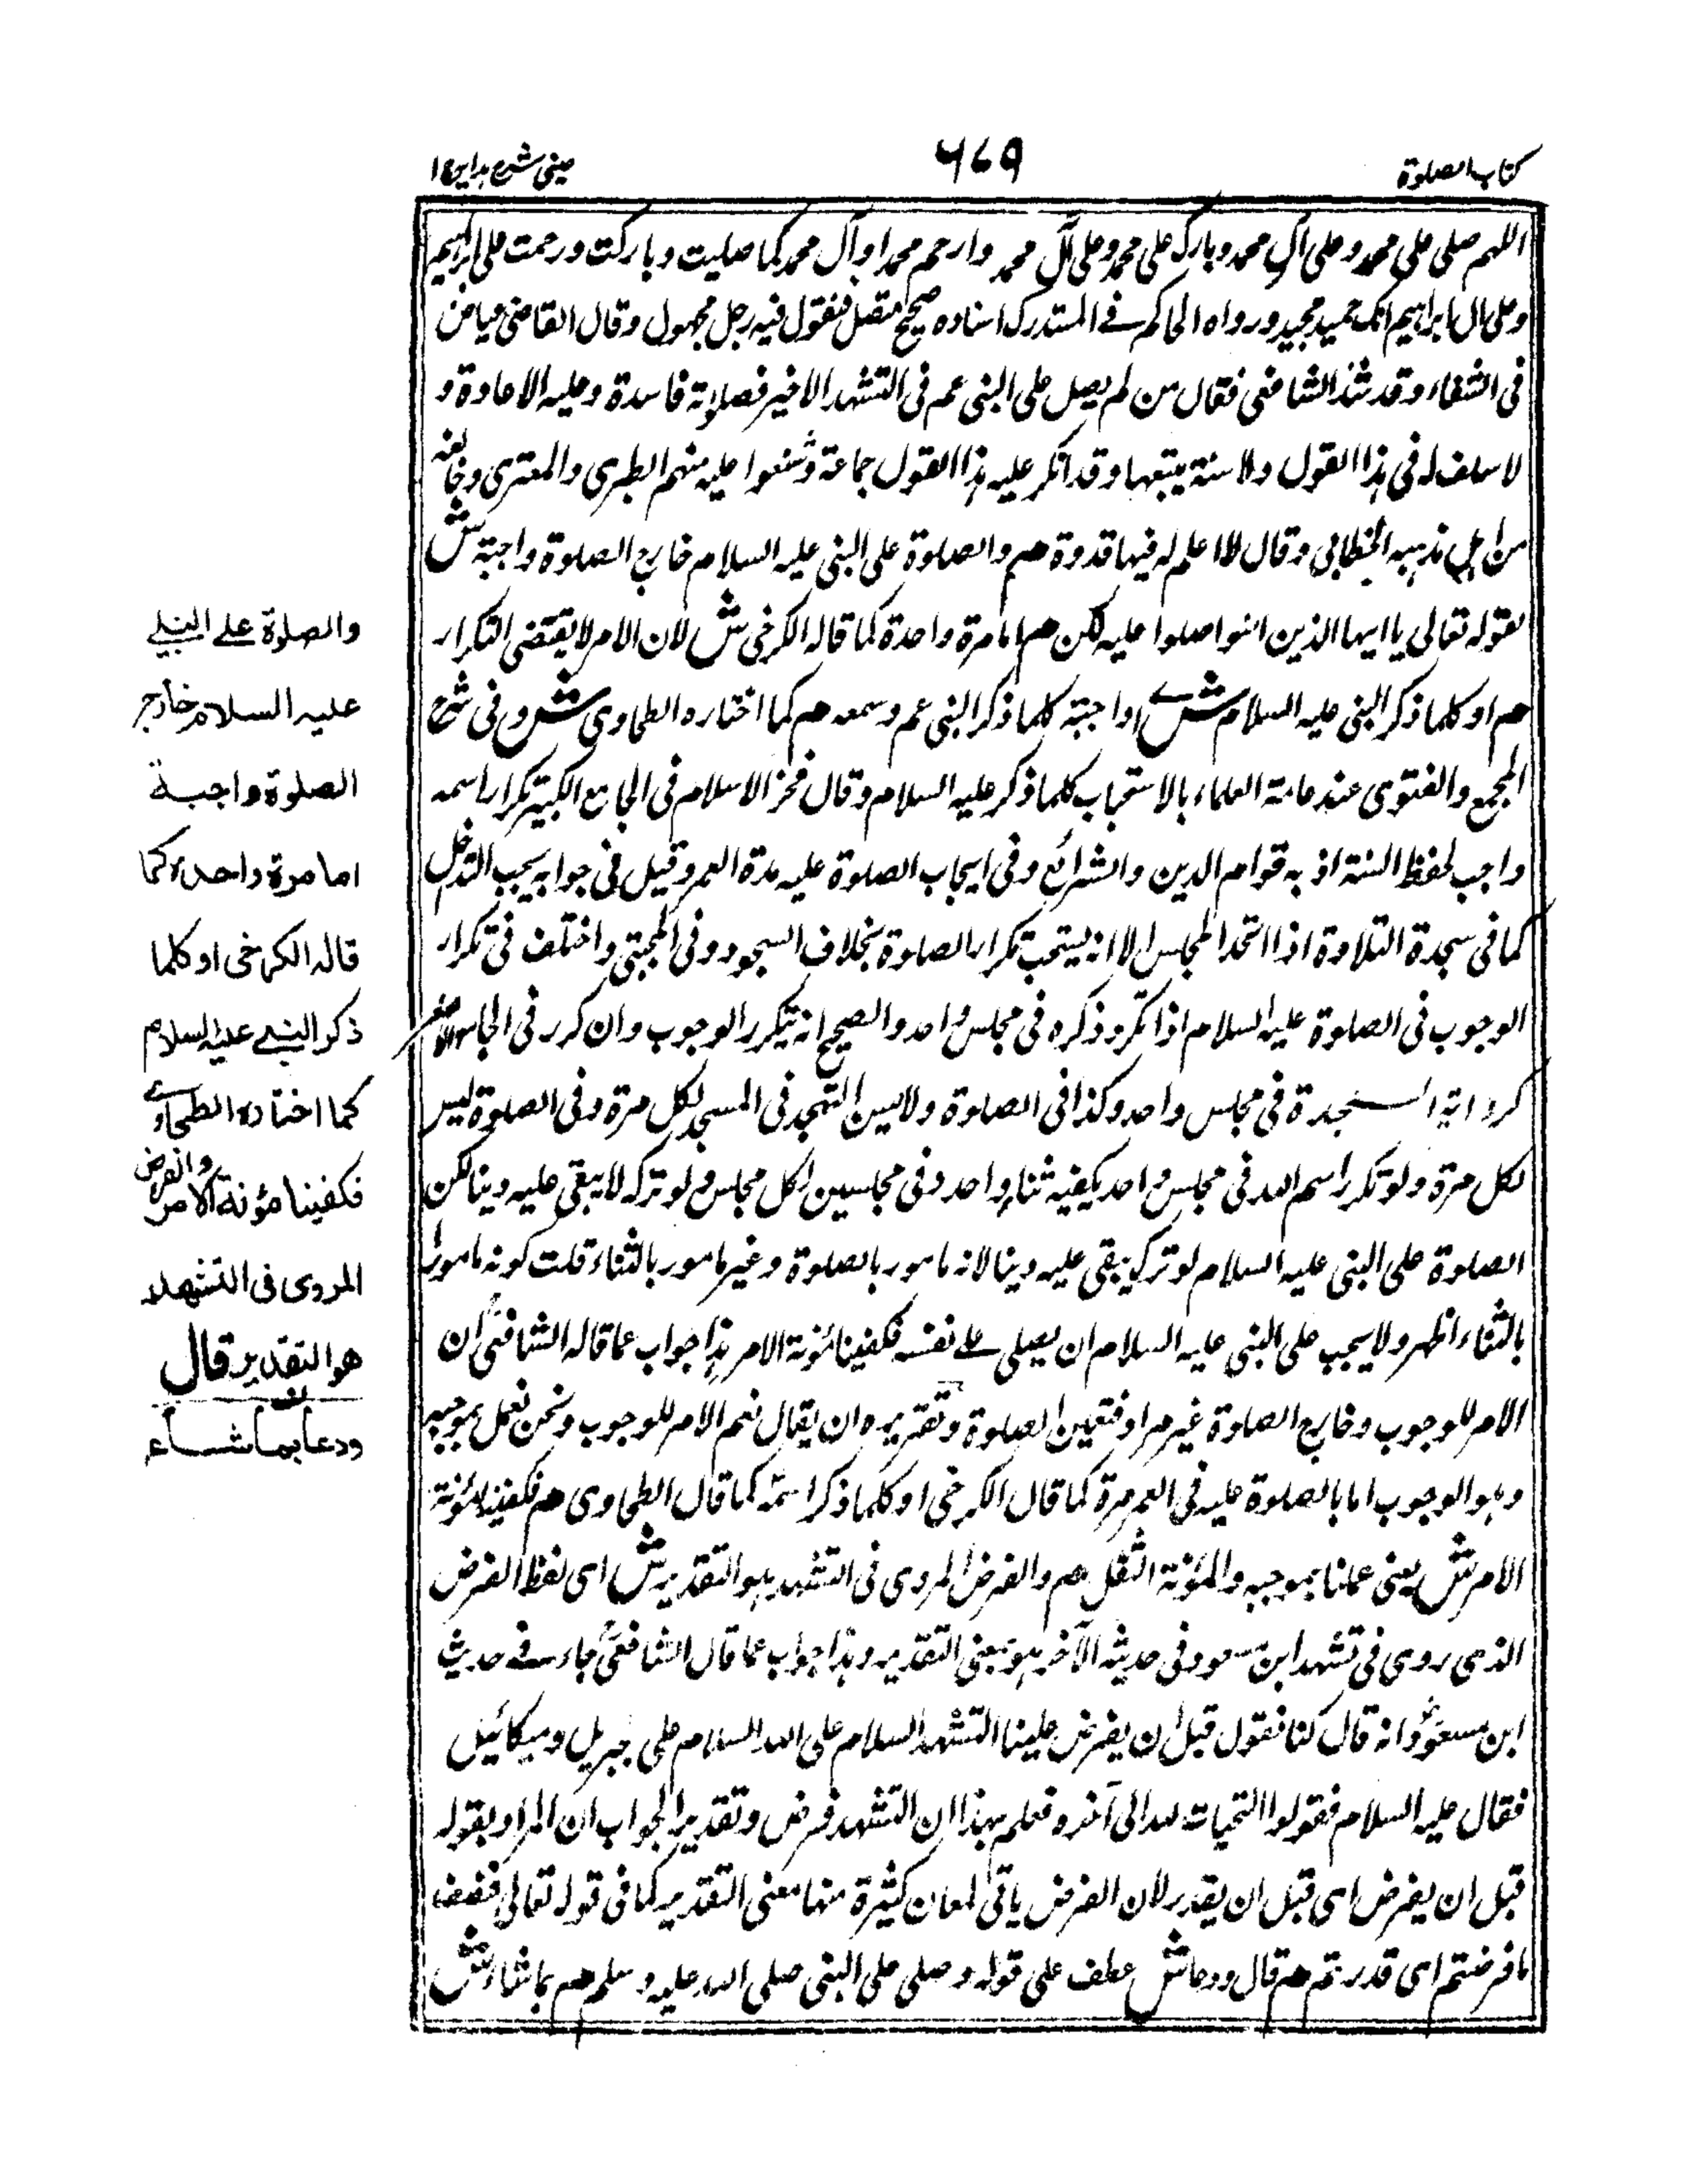 كتاب الصلوة
٦٧٩
عینی شرح هدایه ج ا
اللهم صلى على محمد وعلى آل محمد وبارك على محمد وعلى آل محمد وارحم محمدا وآل محمد كما صليت وباركت ورحمت على ابراهيم
وعلى ال ابراهيم انك حميد مجيد ورواه الحاكم في المستدرك اسناده صحيح متصل فنقول فيه رجل مجهول وقال القاضي عياض
في الشفاء وقد شذ الشافعي فقال من لم يصل على النبي عم في التشهد الاخير فصلاته فاسدة وعليه الاعادة و
لا سلف له في هذا القول ولا سنة يتبعها وقد انكر عليه هذا القول جماعة وشنعوا عليه منهم الطبري والقشيري وخالفه
من اهل مذهبه الخطابي وقال لا اعلم له فيها قدوة هم والصلوة على النبي عليه السلام خارج الصلوة واجبة ش
لقوله تعالى يا ايها الذين امنوا صلوا عليه لكن هم اما مرة واحدة كما قاله الكرخي ش لان الامر لا يقتضى التكرار
هم او كلما ذكر النبي عليه السلام ش اى واجبة كلما ذكر النبي عم وسمعه هم كما اختاره الطحاوى ش وفى شرح
المجمع والفتوى عند عامة العلماء بالاستحباب كلما ذكر عليه السلام وقال فخر الاسلام فى الجامع الكبير تكرار اسمه
واجب لحفظ السنة اذ به قوام الدين والشرائع وفى ايجاب الصلوة عليه مدة العمر وقيل فى جوابه يجب التدخل
كما فى سجدة التلاوة اذا اتحد المجلس الا انه يستحب تكرار الصلوة بخلاف السجود وفى المجتبى واختلف فى تكرار
الوجوب فى الصلوة عليه السلام اذا تكرر ذكره فى مجلس واحد والصحيح انه يتكرر الوجوب وان كرر فى الجامع الاصغر
كرر اية السجدة فى مجلس واحد وكذا فى الصلوة ولا يسن التهجد فى المسجد لكل مرة وفى الصلوة ليس
لكل مرة ولو تكرر اسم الله فى مجلس واحد يكفيه ثناء واحد وفى مجلسين لكل مجلس ولو تركه لا يبقى عليه دينا لكن
الصلوة على النبي عليه السلام لو ترك يبقى عليه دينا لانه مامور بالصلوة وغير مامور بالثناء قلت كونه مامورا
بالثناء اظهر ولا يجب على النبي عليه السلام ان يصلى على نفسه فكفينا مؤنة الامر هذا جواب عما قاله الشافعيؒ ان
الامر للوجوب وخارج الصلوة غير مراد فتعين الصلوة وتقريره ان يقال نعم الامر للوجوب ونحن نعمل بموجبه
وهو الوجوب اما بالصلوة عليه فى العمر مرة كما قال الكرخى او كلما ذكر اسمه كما قال الطحاوى هم فكفينا مؤنة
الامر ش يعنى عملنا بموجبه والمؤنة الثقل هم والفرض المروى فى التشهد هو التقدير ش اى لفظ الفرض
الذى روى فى تشهد ابن مسعود فى حديثه الآخر هو بمعنى التقدير وهذا جواب عما قال الشافعيؒ جاء فى حديث
ابن مسعودؓ انه قال كنا نقول قبل ان يفرض علينا التشهد السلام على الله السلام على جبريل وميكائيل
فقال عليه السلام فقولوا التحيات لله الى آخره فعلم بهذا ان التشهد فرض وتقدير الجواب ان المراد بقوله
قبل ان يفرض اى قبل ان يقدر لان الفرض ياتى لمعان كثيرة منها معنى التقدير كما فى قوله تعالى فنصف
ما فرضتم اى قدرتم هم قال ودعا ش عطف على قوله وصلى على النبي صلى الله عليه وسلم هم بما شاء ش
والصلوة على النبي
عليه السلام خارج
الصلوة واجبة
اما مرة واحدة كما
قاله الكرخى او كلما
ذكر النبي عليه السلام
كما اختاره الطحاوى
فكفينا مؤنة الامر والفرض
المروى فى التشهد
هو التقدير قال
ودعا بما شاء